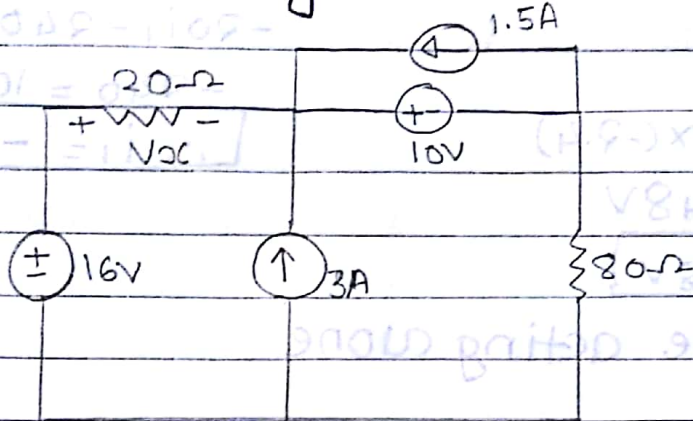 1.5A
20Ω
+ −
Vx
+−
10V
±
16V
↑
3A
80Ω